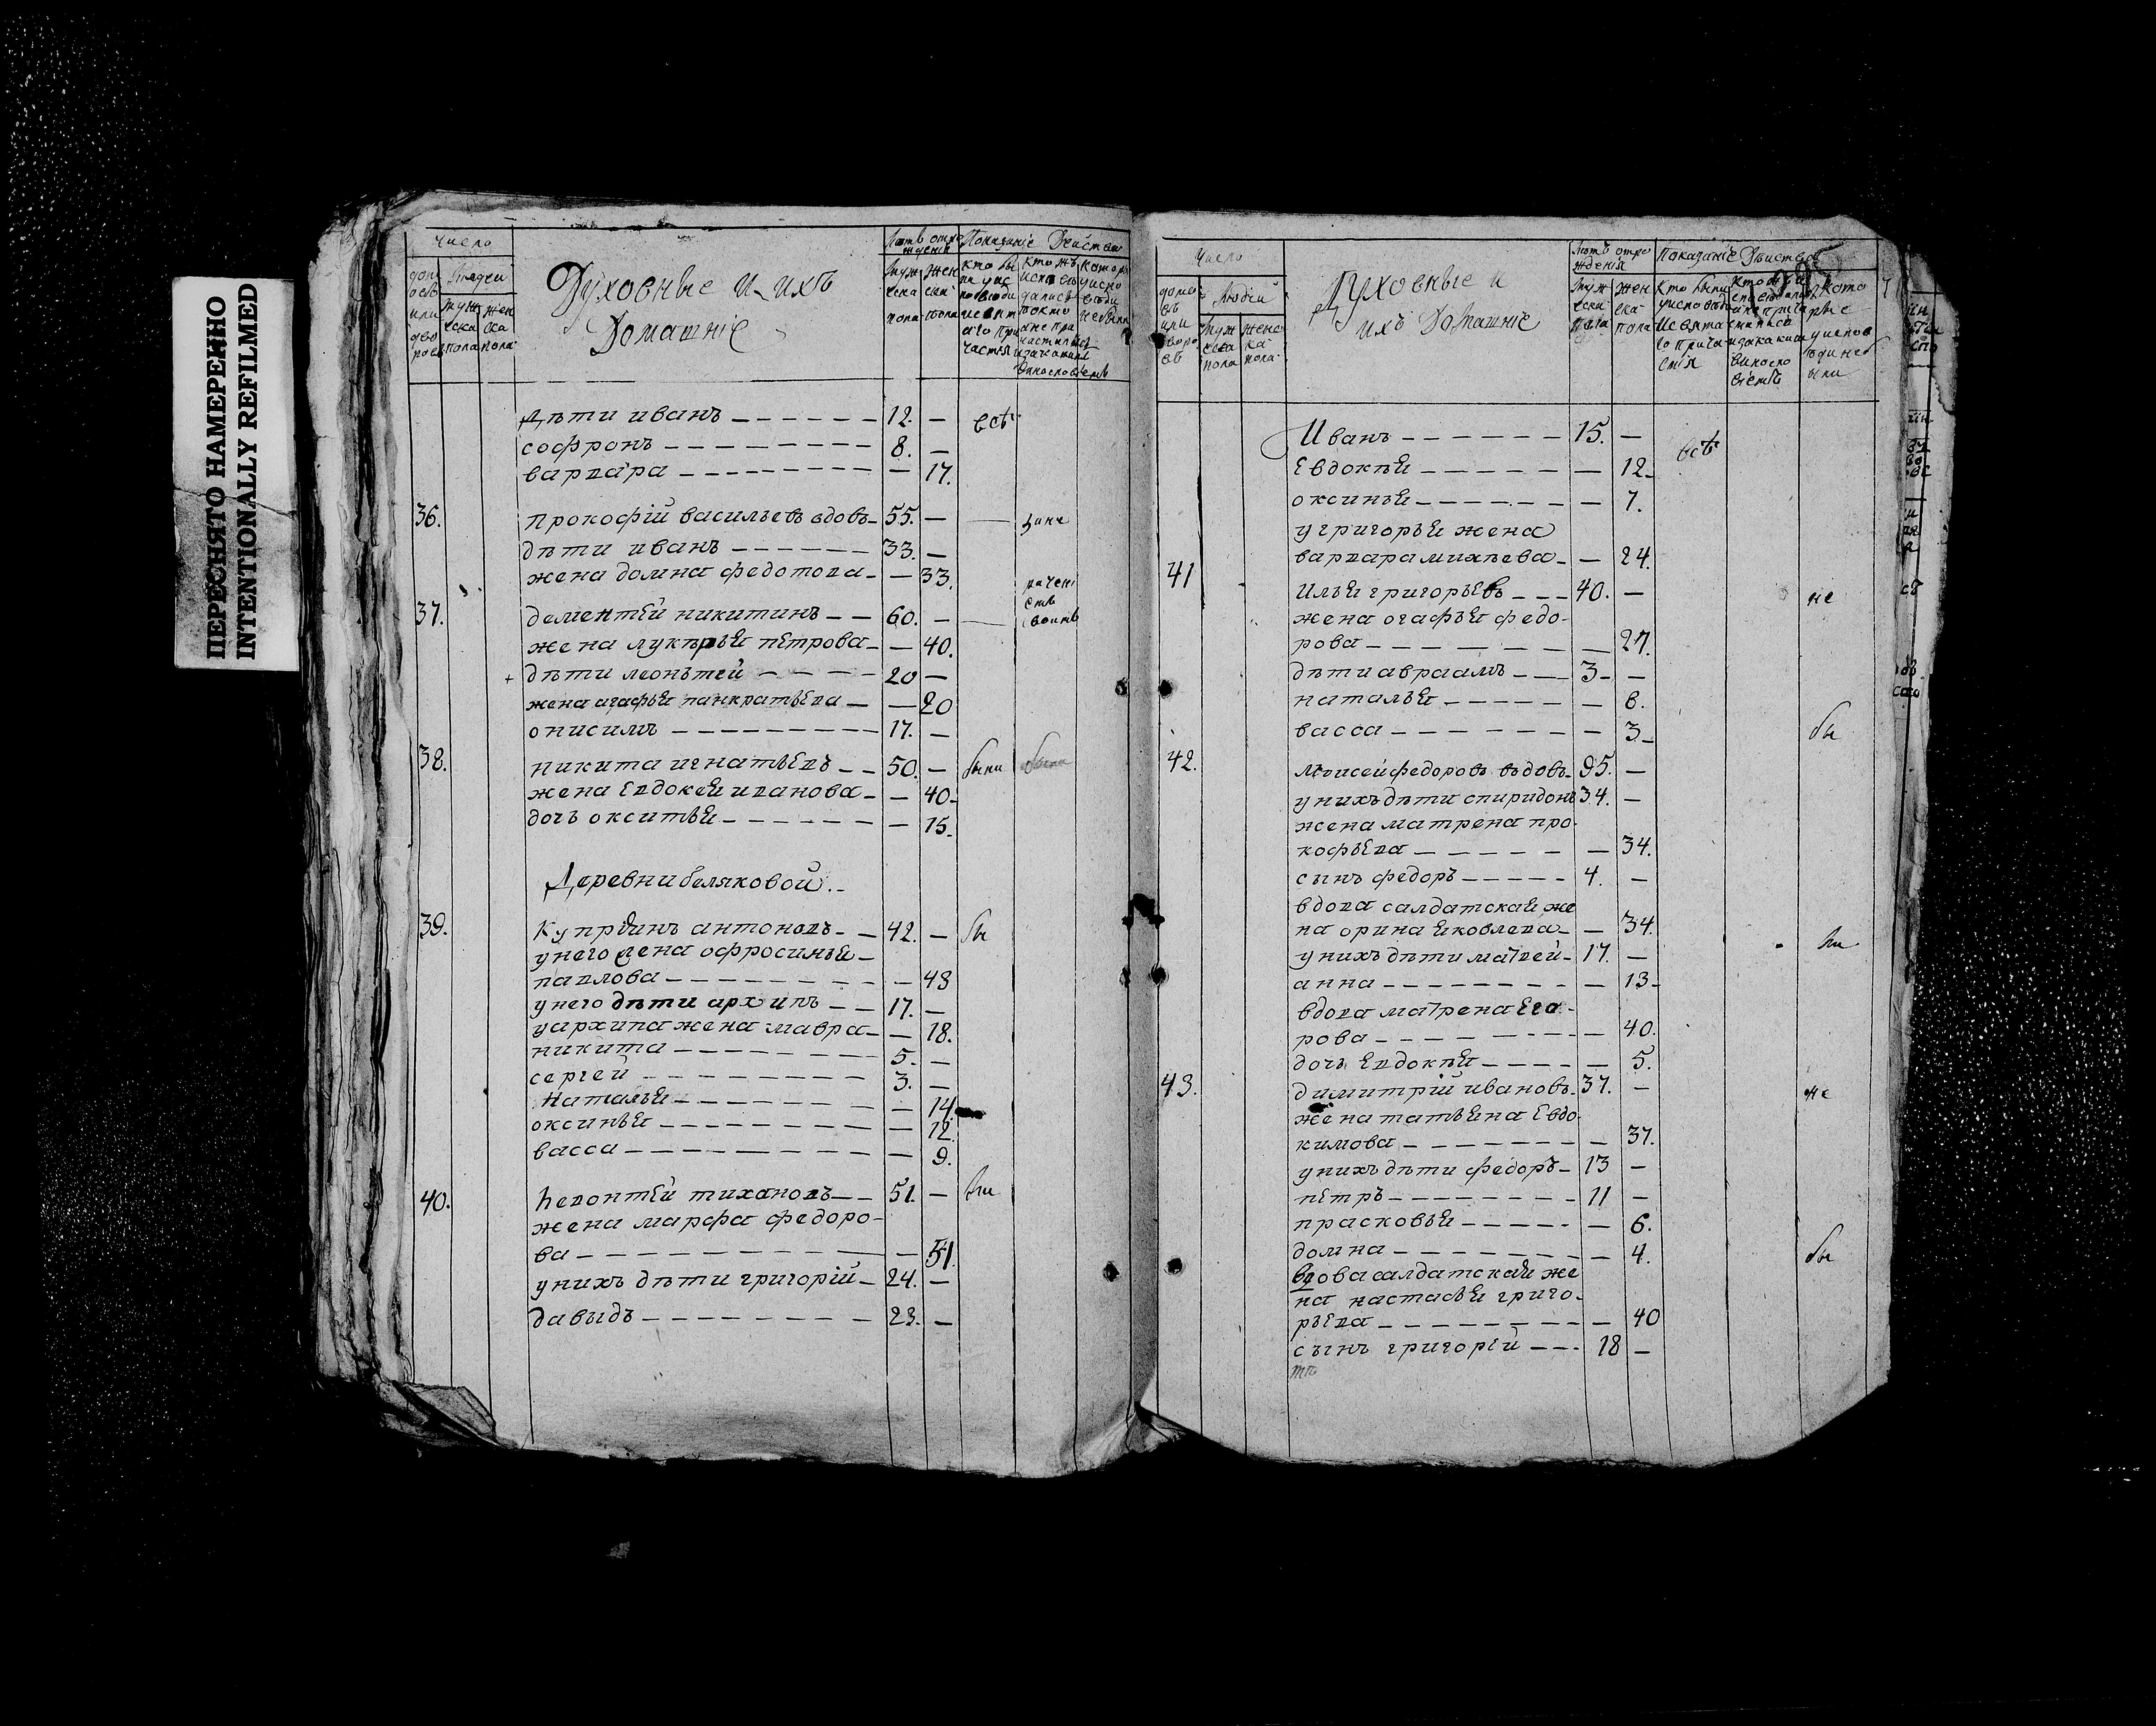 ПЕРЕСНЯТО НАМЕРЕННО
INTENTIONALLY REFILMED
Число
Людей
муж ческа пола
жен ска пола
Духовные и ихъ
Домашнiе
Лѣтъ отро
жденiя
муж ческа пола
жен ска пола
Показанiе Действа
дѣти иванъ 12. —
всѣ
софронъ 8. —
варвара — 17.
36. прокофiй васильевъ вдовъ 55. —
дѣти иванъ 33. —
жена домна федотова — 33.
37. дементей никитинъ 60. —
жена лукѣрья петрова — 40.
+ дѣти леонътей 20 —
жена агафья панкратьева — 20
онисимъ 17. —
38. никита игнатьевъ 50. — были
жена Евдокея иванова — 40
дочь окситья — 15.
Деревни беляковой
39. Куприянъ антоновъ 42. — бы
у него жена офросинья
павлова — 43
у него дѣти архипъ 17. —
у архипа жена мавра — 18.
никита 5. —
сергей 3. —
Наталья — 14.
оксинья — 12.
васса — 9.
40. леонтей тихоновъ 51. — ли
жена марфа федоро-
ва — 51.
у нихъ дѣти григорiй 24. —
давыдъ 23. —
Число
Людей
муж ческа пола
женс ка пола
Духовные и
ихъ Домашнiе
Лѣтъ отро
жденiя
муж ческа пола
жен ска пола
Показанiе Действа
Иванъ 15. —
всѣ
Евдокѣя — 12
оксинья — 7.
у григорья жена
варвара михѣева — 24.
41 Илья григорьевъ 40. —
не
жена огафья федо-
рова — 27.
дѣти авраамъ 3 —
наталья — 8.
васса — 3
бы
42. Моисей федоровъ въдовъ 95. —
у нихъ дѣти спиридонъ 34. —
жена матрена про-
кофьева — 34.
сынъ федоръ 4. —
вдова салдатская же
на орина яковлева — 34.
ли
у нихъ дѣти матвей 17. —
анна — 13
вдова матрена Его-
рова — 40.
дочь Евдокѣя — 5.
43. димитрiй ивановъ 37. —
не
жена татьяна Евдо-
кимова — 37.
у нихъ дѣти федоръ 13 —
пЕтръ 11 —
прасковья — 6.
домна — 4.
бы
вдова салдатская же
на настасья григо-
рьева — 40
сынъ григорiй 18 —